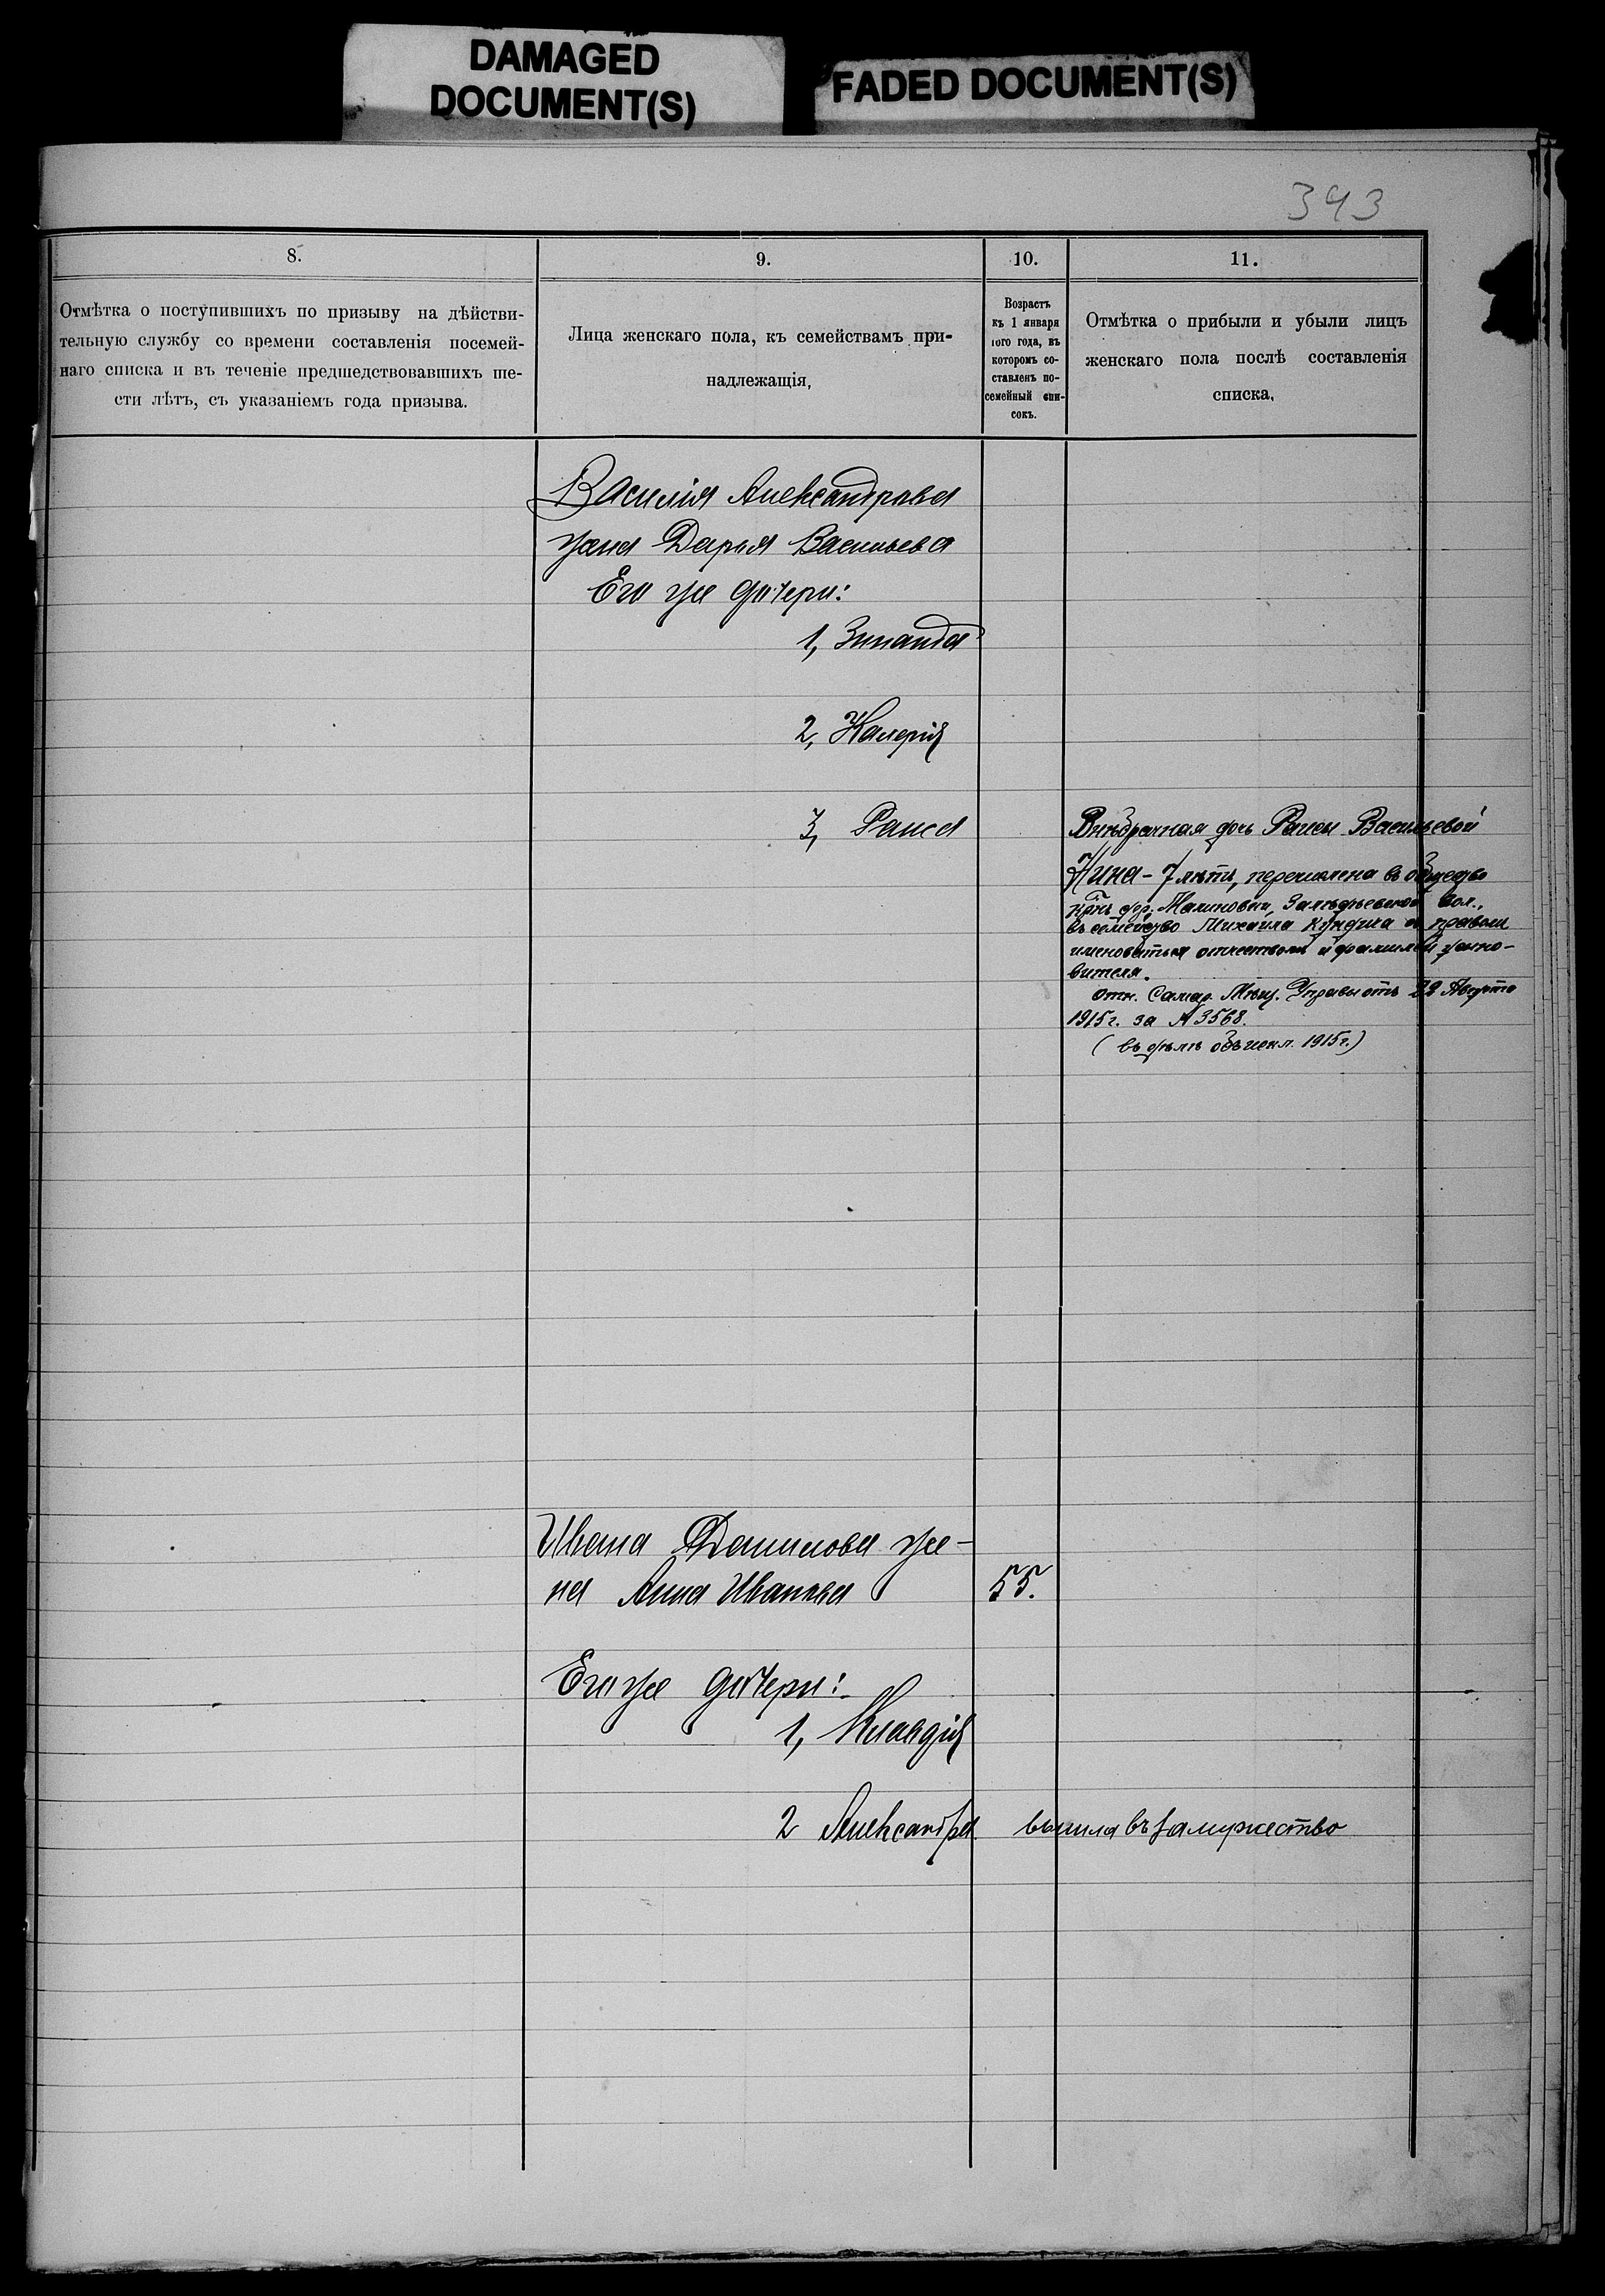 DAMAGED
DOCUMENT(S)
FADED DOCUMENT(S)
343
8.
9.
10.
11.
Отмѣтка о поступившихъ по призыву на дѣйстви-
тельную службу со времени составленія посемей-
наго списка и въ теченіе предшедствовавшихъ ше-
сти лѣтъ, съ указаніемъ года призыва.
Лица женскаго пола, къ семействамъ при-
надлежащія,
Возрастъ
къ 1 января
того года, въ
которомъ со-
ставленъ по-
семейный спи-
сокъ.
Отмѣтка о прибыли и убыли лицъ
женскаго пола послѣ составленія
списка,
Василія Александрова
жена Дарья Васильева
Его же дочери:
1, Зинаида
2, Валерія
3, Раиса
Внѣбрачная дочь Раисы Васильевой
Нина - 7 лѣтъ, перечислена въ общество
крнъ дер. Малиновки, вол.,
въ семейство Михаила съ правомъ
именоваться отчествомъ и фамиліей усыно-
вителя.
Отн. Самар. Мѣщ. Управы отъ 22 Августа
1915 г. за № 3568.
(въ дѣлѣ 1915 г.)
Ивана Данилова же-
на Анна Иванова 55.
Его же дочери:
1, Клавдія
2 Александра вышла въ замужество